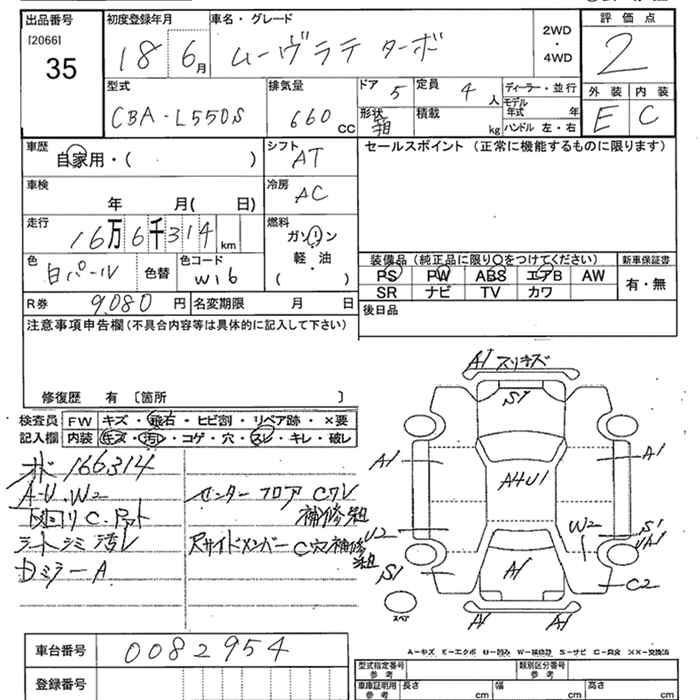 出品番号
[2066]
35
初度登録年月
18 6月
車名・グレード
ムーヴラテ ターボ
2WD
・
4WD
評価点
2
外装 内装
E C
型式
CBA-L550S
排気量
660 cc
ドア 5
形状 箱
定員 4 人
積載 kg
ディーラー・並行
モデル
年式 年
ハンドル 左・右
車歴
自家用・( )
シフト
AT
セールスポイント (正常に機能するものに限ります)
車検
年 月( 日)
冷房
AC
走行
16万6千314 km
燃料
ガソリン
軽・油
( )
色
白パール
色替
色コード
W16
装備品 (純正品に限り○をつけてください)
新車保証書
PS PW ABS エアB AW
SR ナビ TV カワ
有・無
R券 9,080 円
名変期限 月 日
後日品
注意事項申告欄 (不具合内容等は具体的に記入して下さい)
修復歴 有 〔箇所 〕
検査員
記入欄
FW キズ・飛石・ヒビ割・リペア跡・×要
内装 キズ・汚レ・コゲ・穴・スレ・キレ・破レ
166314
A-U.W2
下回リ C.
シートシミ汚レ
Dミラー A
センターフロア Cワレ
補修
Rサイドメンバー C穴補修
A1 スリキズ
S1
A1
A4U1
A1
U2
S1
W2
S1
UA1
A1
C2
A1
A1
スペア
A-キズ E-エクボ U-凹み W-補修跡 S-サビ C-腐食 ××-交換済
車台番号 0082954
登録番号
型式指定番号
参考
類別区分番号
参考
車庫証明用
参考
長さ cm
幅 cm
高さ cm